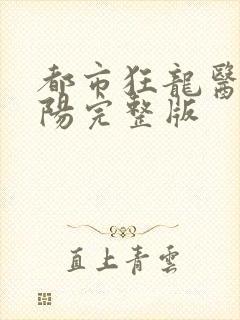 都市狂龍醫
陽完整版
直上青雲